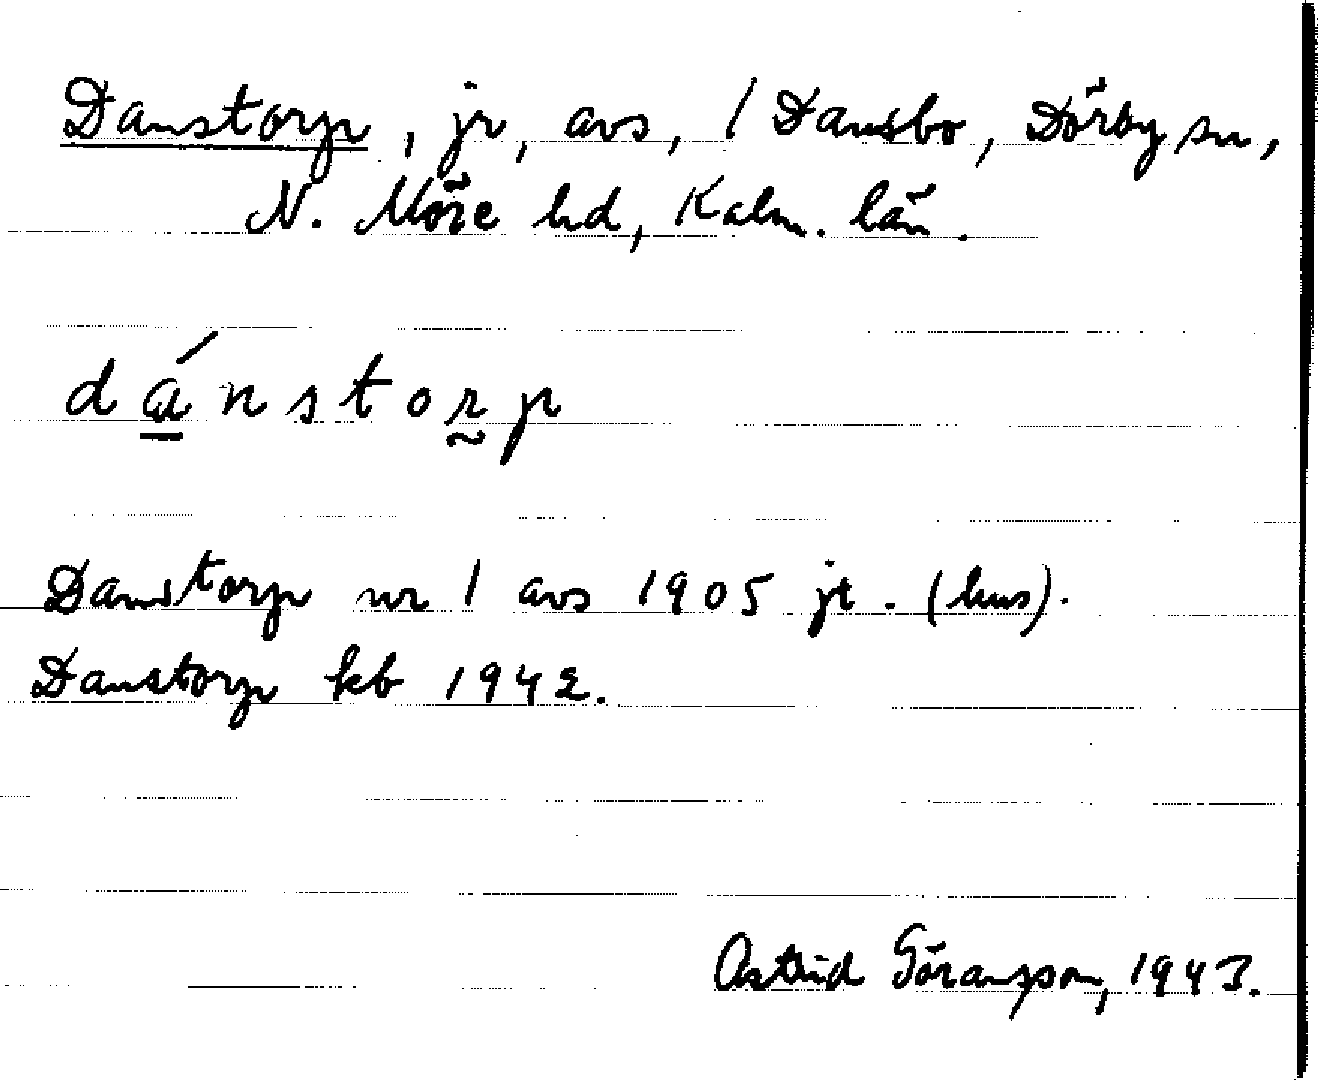 Danstorp, jr, avs, 1 Dansbo, Dörby sn,
N. Möre hd, Kalm. län.
dánstorp
Danstorp nr 1 avs 1905 jt. (hus).
Danstorp kb 1942.
Astrid Göransson, 1943.